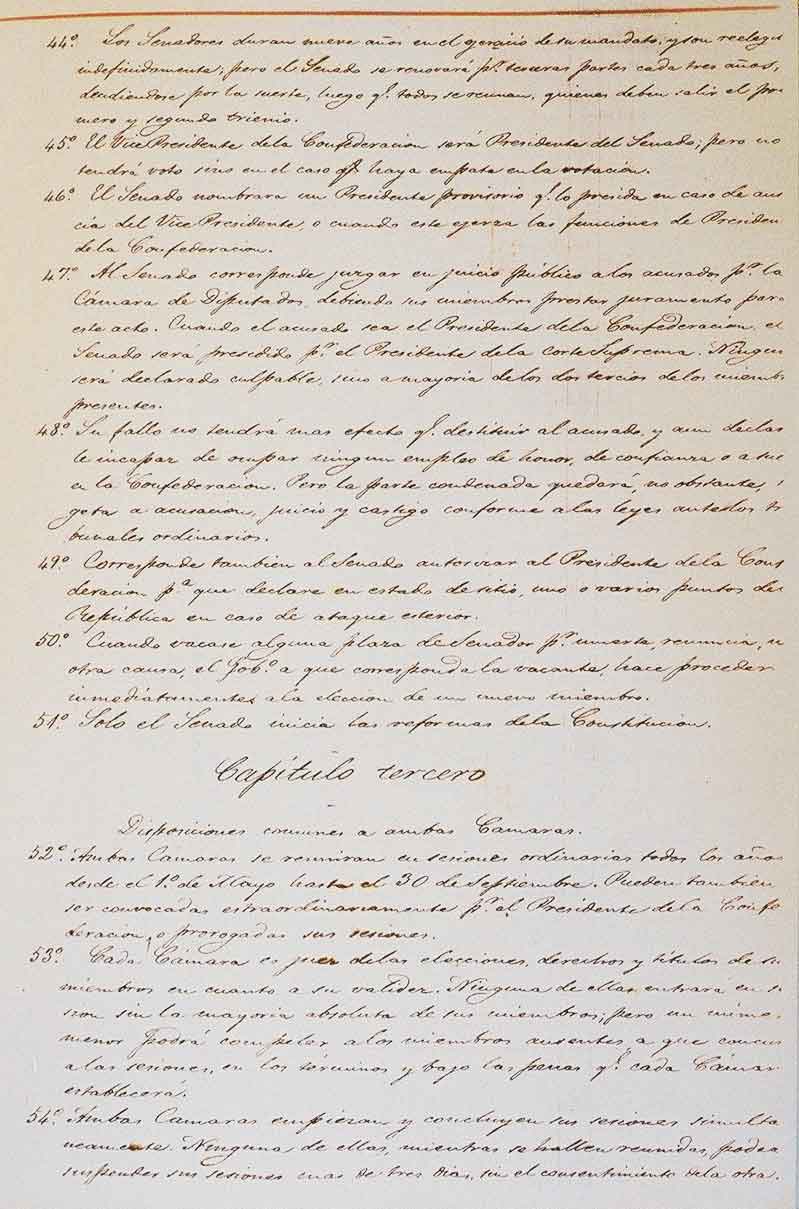 44º. Los Senadores duran nueve años en el ejercicio de su mandato; y son reelegi
indefinidamente; pero el Senado se renovará pʳ. terceras partes cada tres años,
decidiendose por la suerte, luego qᵉ. todos se reunan, quienes deben salir el pri
mero y segundo trienio.
45º. El Vice Presidente dela Confederacion será Presidente del Senado; pero no
tendrá voto sino en el caso qᵉ haya empate en la votación.
46º. El Senado nombrara un Presidente provisorio qᵉ. lo presida en caso de au
cia del Vice Presidente, o cuando este ejerza las funciones de Presiden
de la Confederacion.
47º. Al Senado corresponde juzgar en juicio público a los acusados pʳ. la
Cámara de Diputados, debiendo sus miembros prestar juramento para
este acto. Cuando el acusado sea el Presidente dela Confederacion, el
Senado será presidido pʳ. el Presidente de la corte Suprema. Ningun
será declarado culpable, sino a mayoria delos dos tercios delos miemb
presentes.
48º. Su fallo no tendrá mas efecto qᵉ. destituir al acusado, y aun declar
le incapaz de ocupar ningun empleo de honor, de confianza o a sue
en la Confederacion. Pero la parte condenada quedará, no obstante, s
geta a acusacion, juicio y castigo conforme a las leyes ante los tri
bunales ordinarios.
49º. Corresponde tambien al Senado autorizar al Presidente dela Conf
deracion pᵃ. que declare en estado de sitio, uno o varios puntos de
República en caso de ataque esterior.
50º. Cuando vacase alguna plaza de Senador pʳ. muerte, renuncia, u
otra causa, el Gobº. a que corresponda la vacante, hace proceder
inmediatamente a la eleccion de un nuevo miembro.
51º. Solo el Senado inicia las reformas dela Constitucion.
Capítulo tercero
Disposiciones comunes a ambas Camaras.
52º. Ambas Camaras se reuniran en sesiones ordinarias todos los años
desde el 1º. de Mayo hasta el 30 de Septiembre. Pueden tambien
ser convocadas estraordinariamente pʳ. el Presidente de la Confe
deracion, o prorogadas sus sesiones.
53º. Cada Cámara es juez delas elecciones, derechos y títulos de su
miembros en cuanto a su validez. Ninguna de ellas entrara en se
sion sin la mayoria absoluta de sus miembros; pero un núme.
menor podrá compeler a los miembros ausentes a que concur
a las sesiones, en los términos y bajo las penas qᵉ. cada Cámar
establecerá.
54º. Ambas Camaras empiezan y concluyen sus sesiones simulta
neamente. Ninguna de ellas, mientras se hallen reunidas, podra
suspender sus sesiones mas de tres dias, sin el consentimiento dela otra.